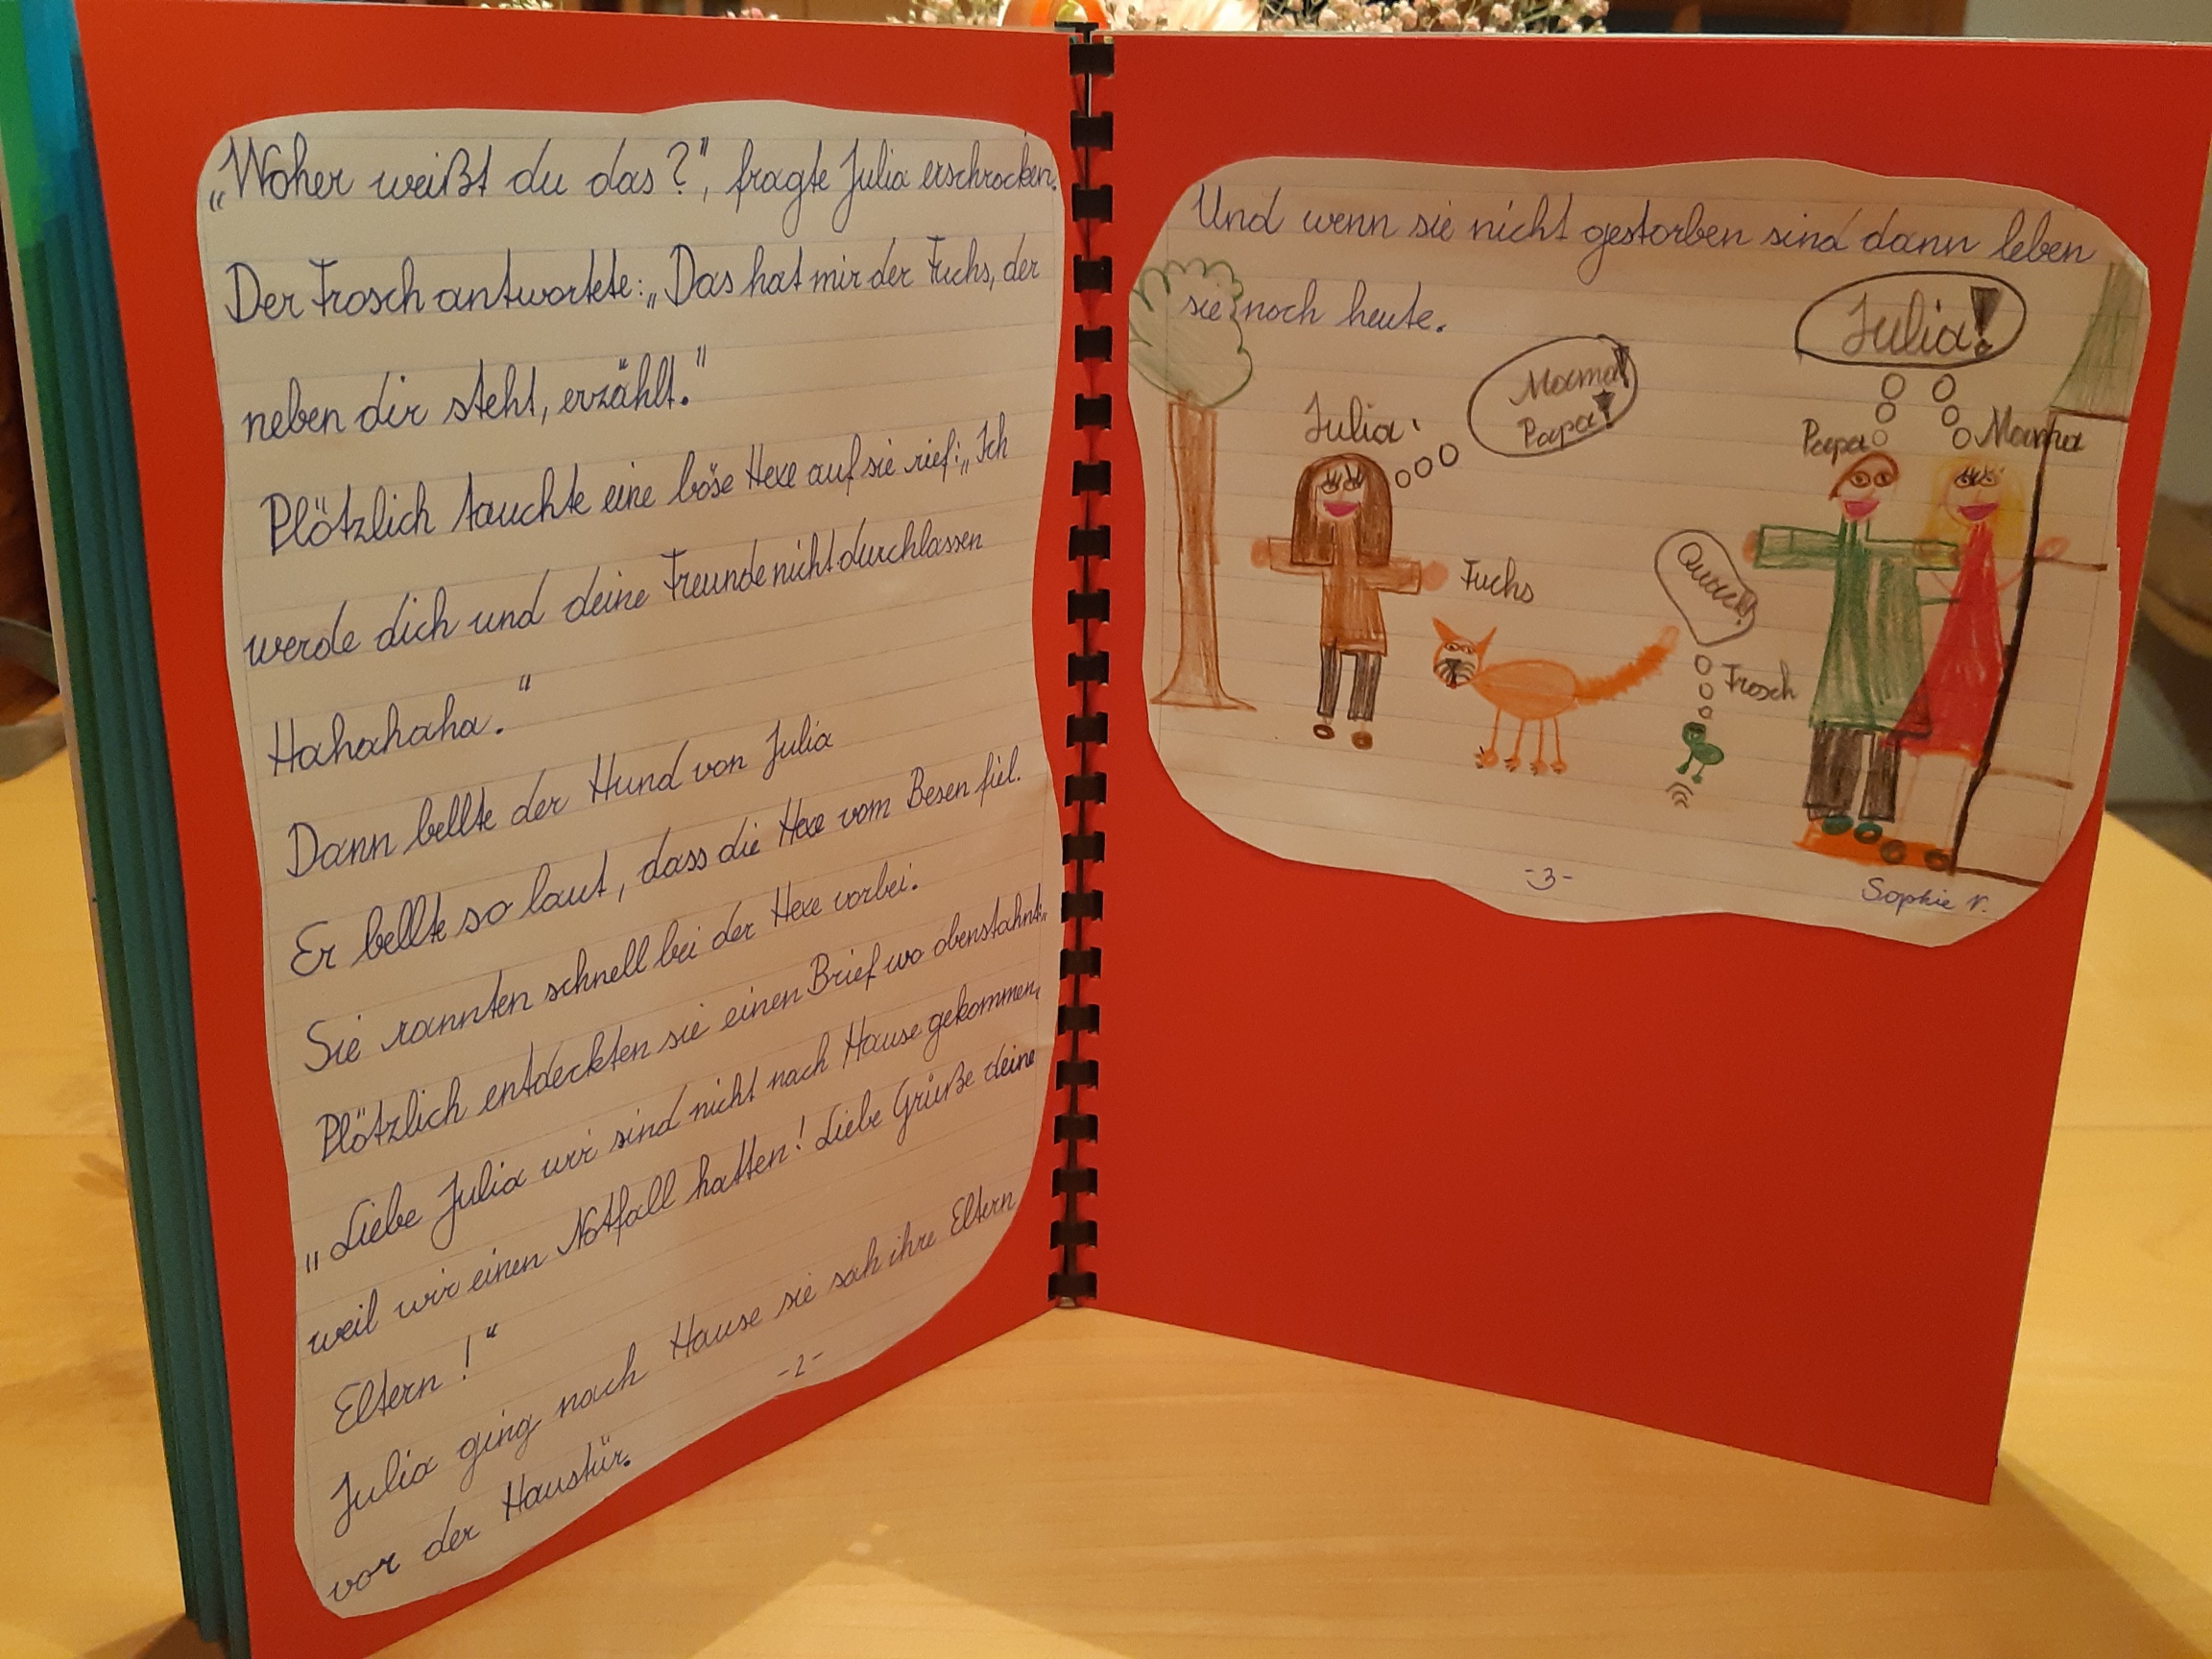 „Woher weißt du das?", fragte Julia erschrocken.
Der Frosch antwortete: „Das hat mir der Fuchs, der
neben dir steht, erzählt."
Plötzlich tauchte eine böse Hexe auf sie rief: „Ich
werde dich und deine Freunde nicht durchlassen
Hahahaha."
Dann bellte der Hund von Julia
Er bellte so laut, dass die Hexe vom Besen fiel.
Sie rannten schnell bei der Hexe vorbei.
Plötzlich entdeckten sie einen Brief wo obenstahnt:
„Liebe Julia wir sind nicht nach Hause gekommen,
weil wir einen Notfall hatten! Liebe Grüße deine
Eltern!"
Julia ging nach Hause sie sah ihre Eltern
vor der Haustür.
-2-
Und wenn sie nicht gestorben sind dann leben
sie noch heute.
Julia!
Mama!
Papa!
Julia
Papa
Mama
Fuchs
Frosch
-3-
Sophie N.